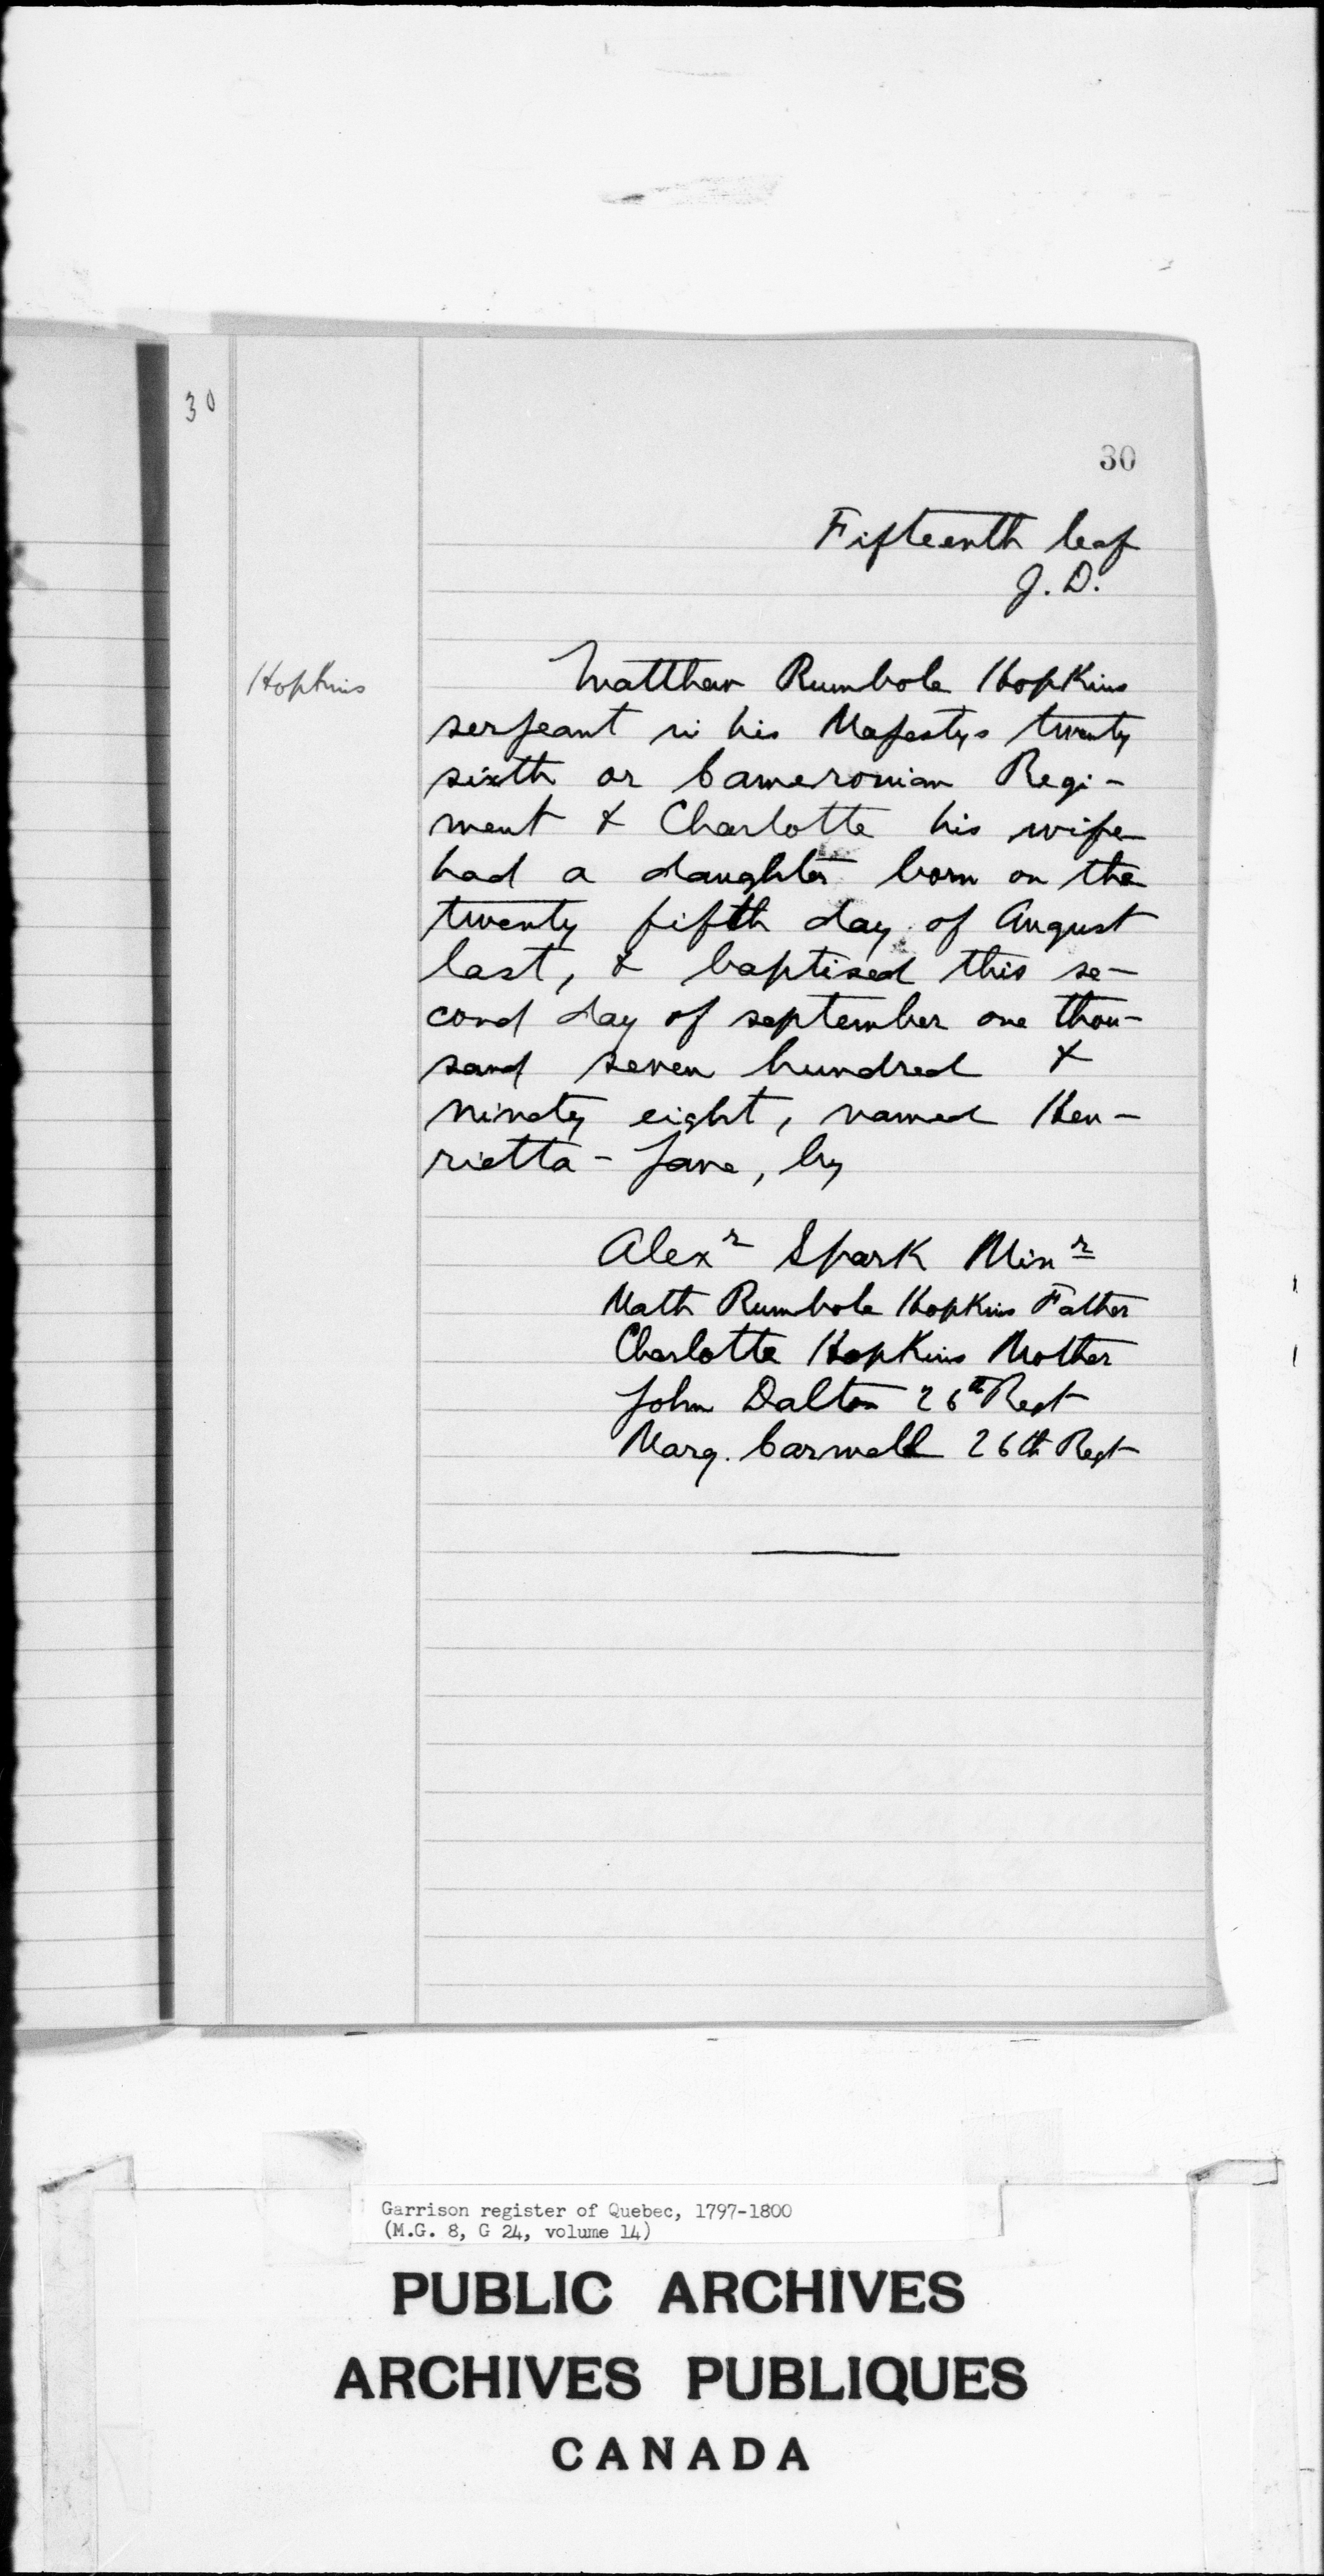 30
30
Fifteenth leaf
J. D.
Hopkins
Matthew Rumbole Hopkins
serjeant in his Majestys twenty
sixth or Cameronian Regi-
ment & Charlotte his wife
had a daughter born on the
twenty fifth day of August
last, & baptised this se-
cond day of september one thou-
sand seven hundred &
ninety eight, named Hen-
rietta - Jane, by
Alexr Spark Minr
Math Rumbole Hopkins Father
Charlotte Hopkins Mother
John Dalton 26th Regt
Marg. Carwell 26th Regt
Garrison register of Quebec, 1797-1800
(M.G. 8, G 24, volume 14)
PUBLIC ARCHIVES
ARCHIVES PUBLIQUES
CANADA